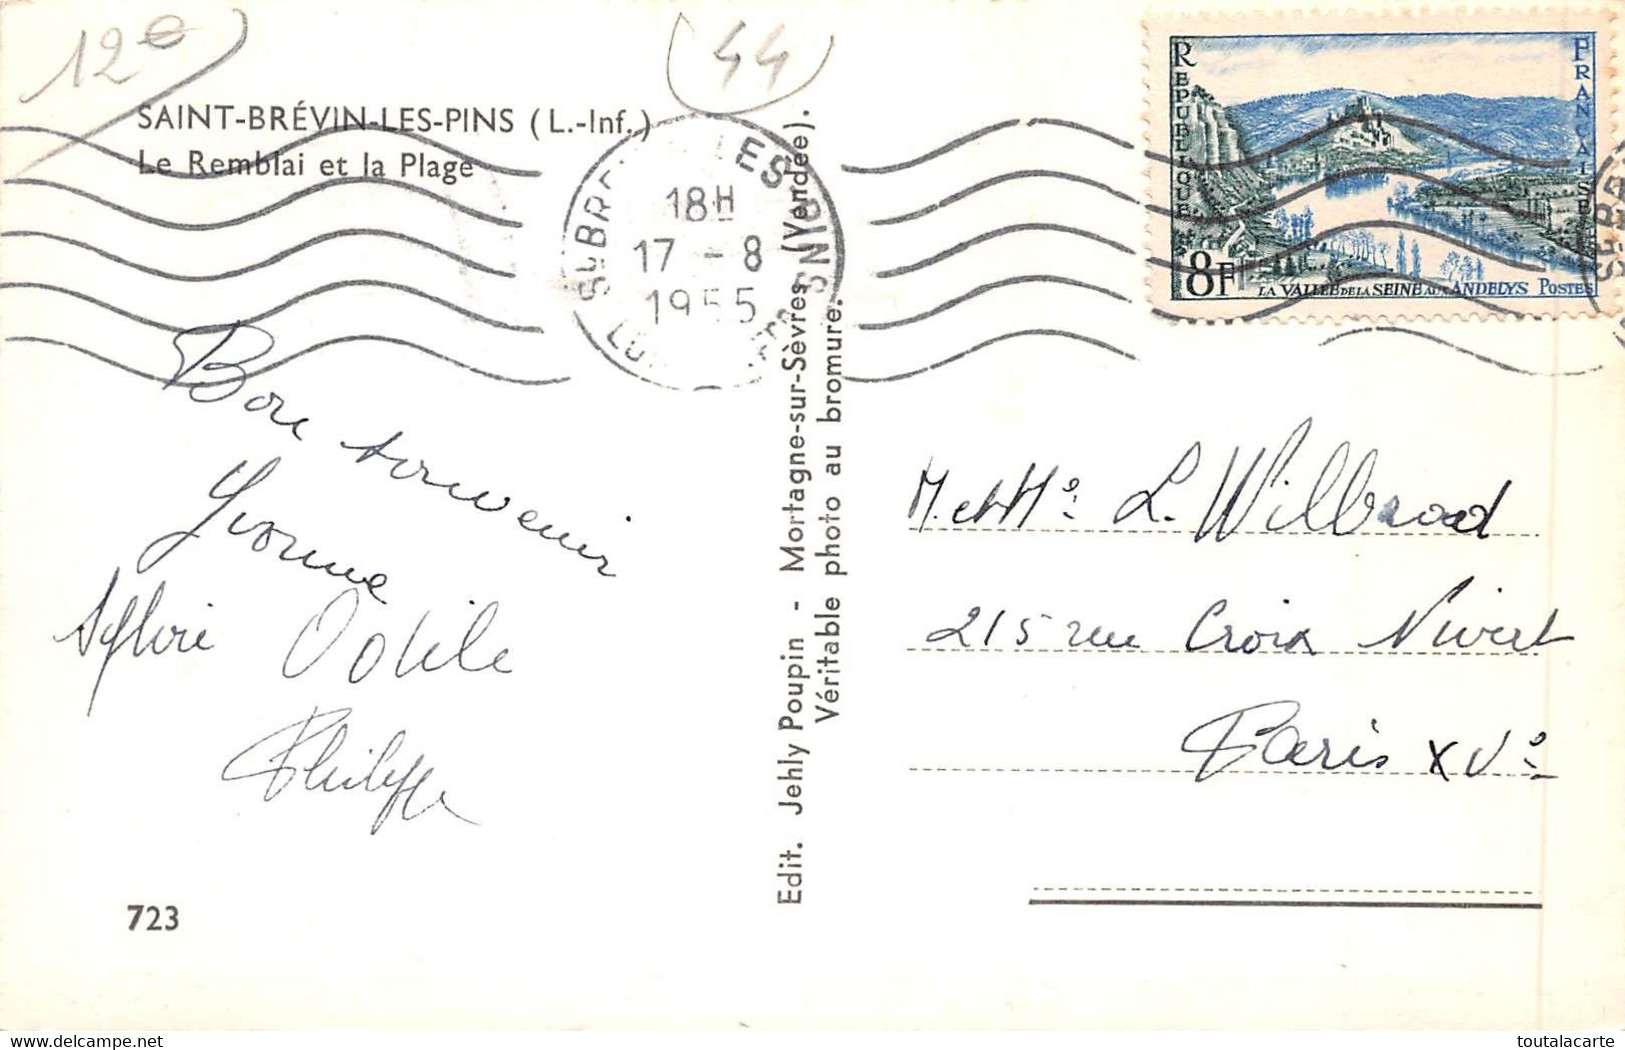 12€
(44)
SAINT-BRÉVIN-LES-PINS (L.-Inf.)
Le Remblai et la Plage
LES PINS
18H
17 - 8
1955
RÉPUBLIQUE FRANÇAISE
8F
LA VALLÉE DE LA SEINE AUX ANDELYS POSTES
Bon souvenir
Yvonne
Sylvie Odile
Philippe
723
Edit. Jehly Poupin - Mortagne-sur-Sèvres (Vendée).
Véritable photo au bromure.
M. et Me L. Willbrood
215 rue Croix Nivert
Paris XVe
toutalacarte